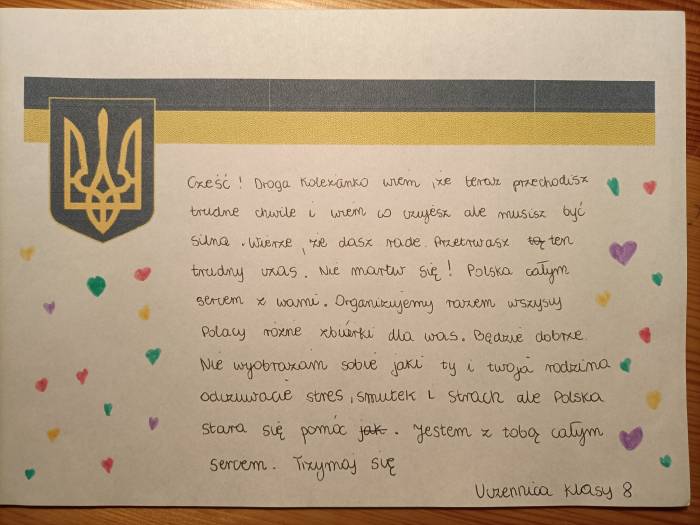 Cześć! Droga Koleżanko wiem, że teraz przechodzisz
trudne chwile i wiem co czujesz ale musisz być
silna. Wierze, że dasz rade. Przetrwasz tą ten
trudny czas. Nie martw się! Polska całym
sercem z wami. Organizujemy razem wszyscy
Polacy różne zbiórki dla was. Będzie dobrze.
Nie wyobrażam sobie jaki ty i twoja rodzina
odczuwacie stres, smutek i strach ale Polska
stara się pomóc jak. Jestem z tobą całym
sercem. Trzymaj się
Uczennica klasy 8